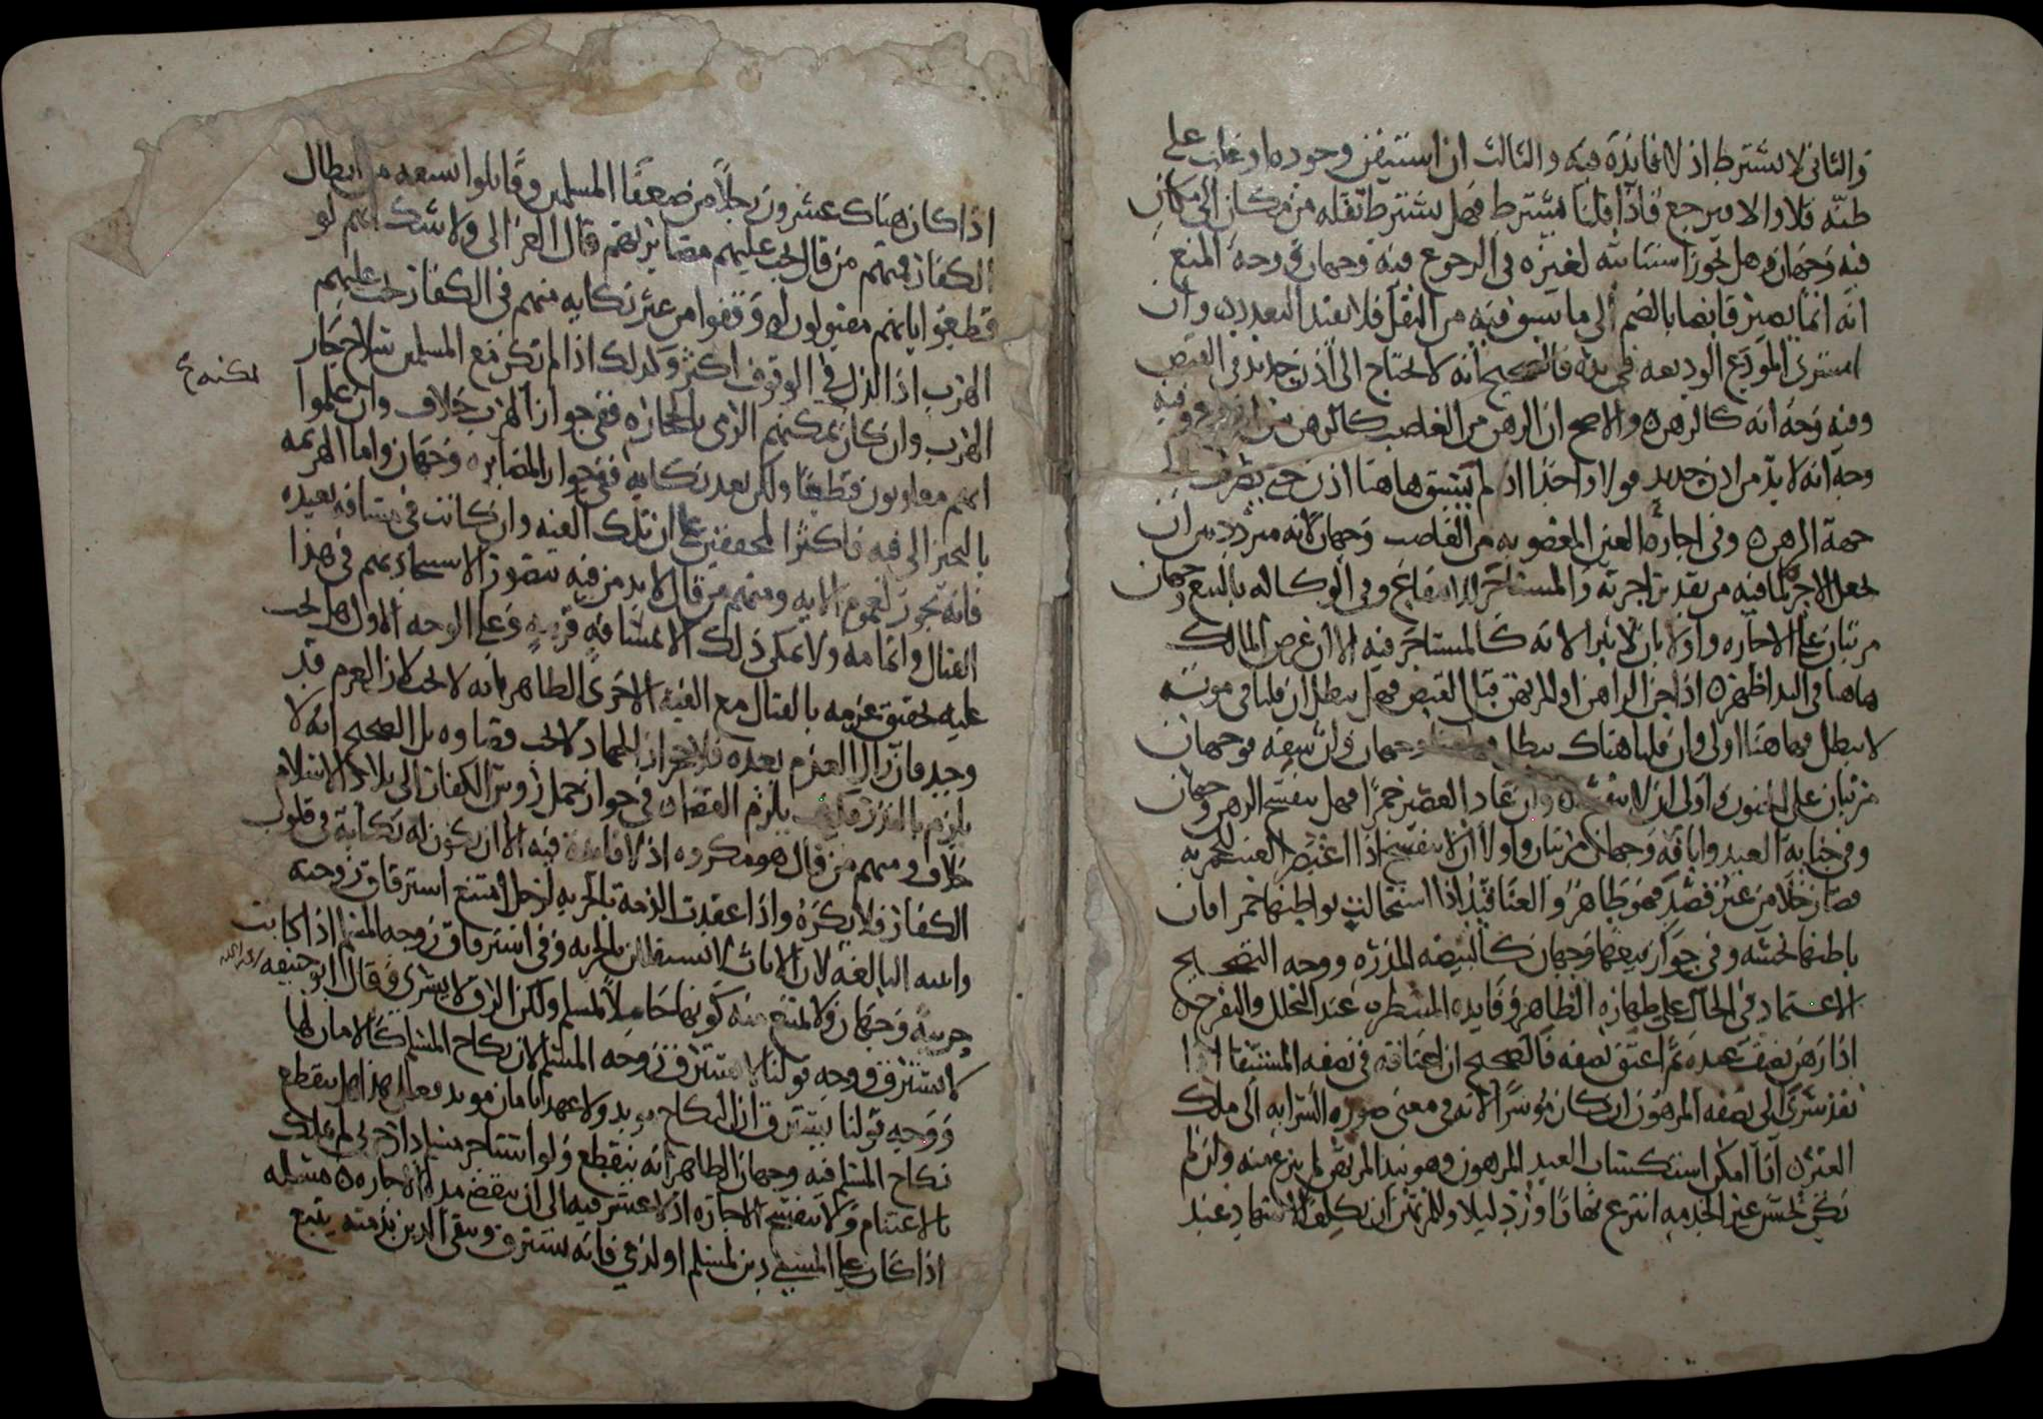 والثانى لا يشترط اذ لا فائدة فيه والثالث ان استيقن وجوده او غلب على
ظنه فلا والا يرجع فاذا قلنا يشترط فهل يشترط نقله من مكان الى مكان
فيه وجهان وهل يجوز استنابته لغيره فى الرجوع فيه وجهان ووجه المنع
انه انما يصير قابضا بالضم الى ما سبق فيه من النقل فلا يفيد التعدد وان
اشترى المودع الوديعه فى يده فالصحيح انه لا يحتاج الى اذن جديد فى القبض
وفيه وجه انه كالرهن والاصح ان الرهن من الغاصب كالرهن من وفيه
وجه انه لا بد من اذن جديد قولا واحدا اذ لم يسبق هاهنا اذن حتى
جهة الرهن وفى اجارة العين المغصوبه من الغاصب وجهان لانه متردد بين ان
يجعل الاجر لما فيه من تقدير اجرته والمستاجر وفى الوكاله بالبيع وجهان
مرتبان على الاجاره واولا بان لا يبرا لانه كالمستاجر فيه الا ان غرض المالك
هاهنا فى اليد اظهر اذا جن الراهن او المرتهن قبل القبض فهل يبطل ان قلنا فى موته
لا يبطل فهاهنا اولى وان قلنا هناك يبطل وجهان ولسفه فوجهان
مرتبان على الجنون واولى ان لا ينفسخ وان عاد العصير خمرا فهل ينفسخ الرهن وجهان
وفى جناية العبد واباقه وجهان مرتبان واولا ان لا ينفسخ اذا العنب للخمريه
فصار خلا من غير قصد فهو طاهر والعناقيد اذا استحالت بواطنها خمرا فان
باطنها نجسه وفى جواز بيعها وجهان كالبيضه المذره ووجه التصحيح
الاعتماد فى الحال على طهارة الظاهر وفايده المنتظره عند التخلل والتفرخ
اذا رهن نصف عبده ثم اعتق نصفه فالصحيح ان اعتاقه فى نصفه المستثنا اذا
نفذ سرى الى نصفه المرهون ان كان موسرا لانه فى معنى صوره السرايه الى ملك
الغير اذا امكن استكساب العبد المرهون وهو بيد المرتهن لم ينزع منه وان لم
يكن يحسن غير الخدمه انتزع نهارا ورد ليلا وللمرتهن ان يكلف الاشهاد عند
اذا كان هناك عشرون رجلا من ضعفا المسلمين وقابلوا تسعه من ابطال
الكفار فمنهم من قال يجب عليهم مصابرتهم قال الغزالى ولا شك انهم لو
قطعوا بانهم مقتولون لو وقفوا من غير نكايه منهم فى الكفار يجب عليهم
الهرب اذ الذل فى الوقوف اكثر وكذلك اذا لم تكن مع المسلمين سلاح جاز
الهرب وان كان يمكنهم الرمى بالحجاره ففى جواز الهرب خلاف وان علموا
لكنه ع
انهم مغلوبون قطعا ولكن بعد نكايه ففى جواز المصابره وجهان واما الهزيمه
بالتحيز الى فيه فاكثر المحققين على ان تلك الفيه وان كانت فى مسافه بعيده
فانه يجوز لعموم الايه ومنهم من قال لا بد من فيه يتصور الاستنجاد بهم فى هذا
القتال واتمامه ولا يمكن ذلك الا بمسافه قريبه وعلى الوجه الاول هل يجب
عليه تحقيق عزمه بالقتال مع الفيه الاخرى الظاهر بانه لا يجب لان العزم قد
وجد فان زال العزم بعده فلا حجر اذ الجهاد لا يجب قضاوه بل الصحيح انه لا
يلزم بالنذر فكيف يلزم القضاء فى جواز حمل روس الكفار الى بلاد الاسلام
خلاف ومنهم من قال هو مكروه اذ لا فائدة فيه الا ان يكون له نكاية فى قلوب
الكفار فلا يكره واذا عقدت الذمة بالجزيه لرجل امتنع استرقاق زوجته
وابنته البالغه لان الاناث لا تستقل بالجزيه وفى استرقاق زوجه المسلم اذا كانت
حربيه وجهان ولا يمنع منه كونها حاملا لمسلم ولكن الرق لا يسرى وقال ابو حنيفه رحمه الله
لا تسترق ووجه قولنا لا تسترق زوجه المسلم لان نكاح المسلم كالامان لها
ووجه قولنا تسترق ان النكاح موبد ولا عهد بامان موبد فعلى هذا هل ينقطع
نكاح المسلم فيه وجهان الظاهر انه ينقطع ولو استاجر مسلم دار حربى لم تملك
بالاغتنام ولا تنفسخ الاجاره اذ لا عسر فيه الى ان تنقضى مدة الاجاره مسئله
اذا كان على المسبى دين لمسلم او لذمى فانه يسترق ويبقى الدين بذمته يتبع